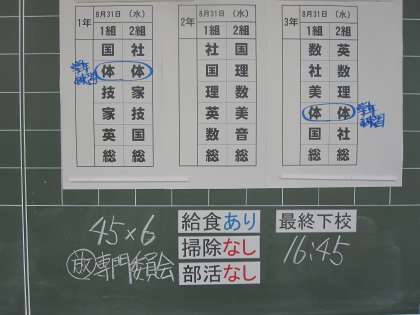 1年 8月31日 (水)
1組 2組
国 社
体 体
学年練習
技 家
家 技
英 国
総 総
2年 8月31日 (水)
1組 2組
社 国
国 理
理 数
英 美
数 音
総 総
3年 8月31日 (水)
1組 2組
数 英
社 数
美 理
体 体
学年練習
国 社
総 総
45×6
放 専門委員会
給食あり
掃除なし
部活なし
最終下校
16:45